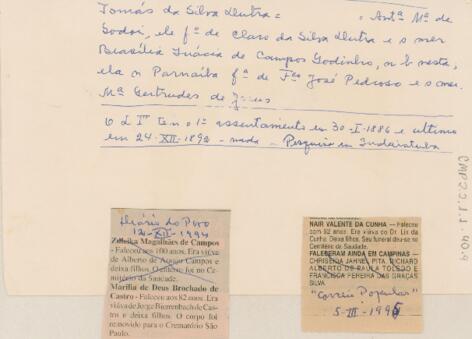 Tomás da Silva Dutra = Antª Mª de
Godoi, ele fº de Claro da Silva Dutra e s mer
Brasília Inácia de Campos Godinho, n b nesta,
ela n Parnaíba fª de Fco José Pedroso e s mer.
Mª Gertrudes de Jesus
O L 1º tem o 1º assentamento em 30-I-1886 e ultimo
em 24-XII-1892 - nada - Pesquisa em Indaiatuba
CMP 2.2.1.1.
Diário do Povo
12-XII-1994
Zuleika Magalhães de Campos
- Faleceu aos 100 anos. Era viúva
de Alberto de Aguiar Campos e
deixa filhos. O enterro foi no Ce-
mitério da Saudade.
Marília de Deus Brochado de
Castro - Faleceu aos 82 anos. Era
viúva de Jorge Bierrenbach de Cas-
tro e deixa filhos. O corpo foi
removido para o Crematório São
Paulo.
NAIR VALENTE DA CUNHA — Faleceu
com 92 anos. Era viúva do Dr. Lix da
Cunha. Deixa filhos. Seu funeral deu-se no
Cemitério da Saudade.
FALECERAM AINDA EM CAMPINAS —
CHRISEIDA JAHVEL PITA, RICHARD
ALBERTO DE PAULA TOLEDO E
FRANCISCA PEREIRA DAS GRAÇAS
SILVA.
"Correio Popular"
5-III-1995